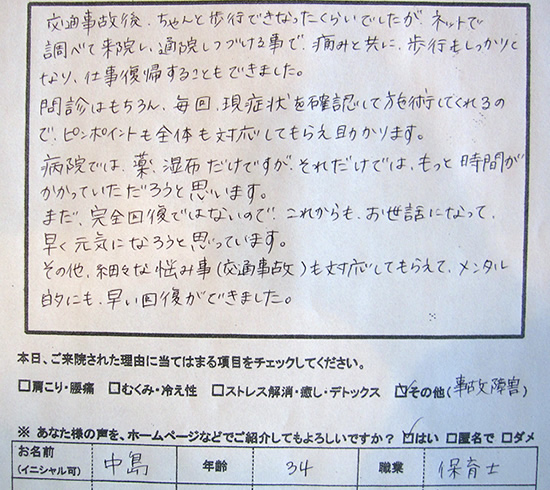 交通事故後、ちゃんと歩行できなったくらいでしたが、ネットで
調べて来院し、通院しつづける事で、痛みと共に、歩行もしっかりと
なり、仕事復帰することもできました。
問診はもちろん、毎回、現症状を確認して施術してくれるの
で、ピンポイントも全体も対応してもらえ助かります。
病院では、薬、湿布だけですが、それだけでは、もっと時間が
かかっていただろうと思います。
まだ、完全回復ではないので、これからも、お世話になって、
早く元気になろうと思っています。
その他、細々な悩み事(交通事故)も対応してもらえて、メンタル
的にも、早い回復ができました。
本日、ご来院された理由に当てはまる項目をチェックしてください。
□肩こり・腰痛 □むくみ・冷え性 □ストレス解消・癒し・デトックス ☑その他(事故障害)
※ あなた様の声を、ホームページなどでご紹介してもよろしいですか? ☑はい □匿名で □ダメ
お名前 (イニシャル可) 中島 年齢 34 職業 保育士